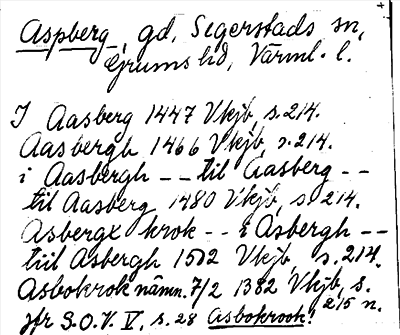 Aspberg, gd, Segerstads sn,
Grums hd, Värml. l.
I Aasberg 1447 Vkjb, s. 214.
Aasbergh 1466 Vkjb, s. 214.
i Aasbergh -- til Aasberg --
til Aasberg 1480 Vkjb, s. 214.
Asbergx krok -- i Asbergh --
tiil Asbergh 1502 Vkjb, s. 214.
Asbokrok nämn. 7/2 1382 Vkjb, s.
215 n.
jfr S.O.V. V, s. 28 Asbokrook!